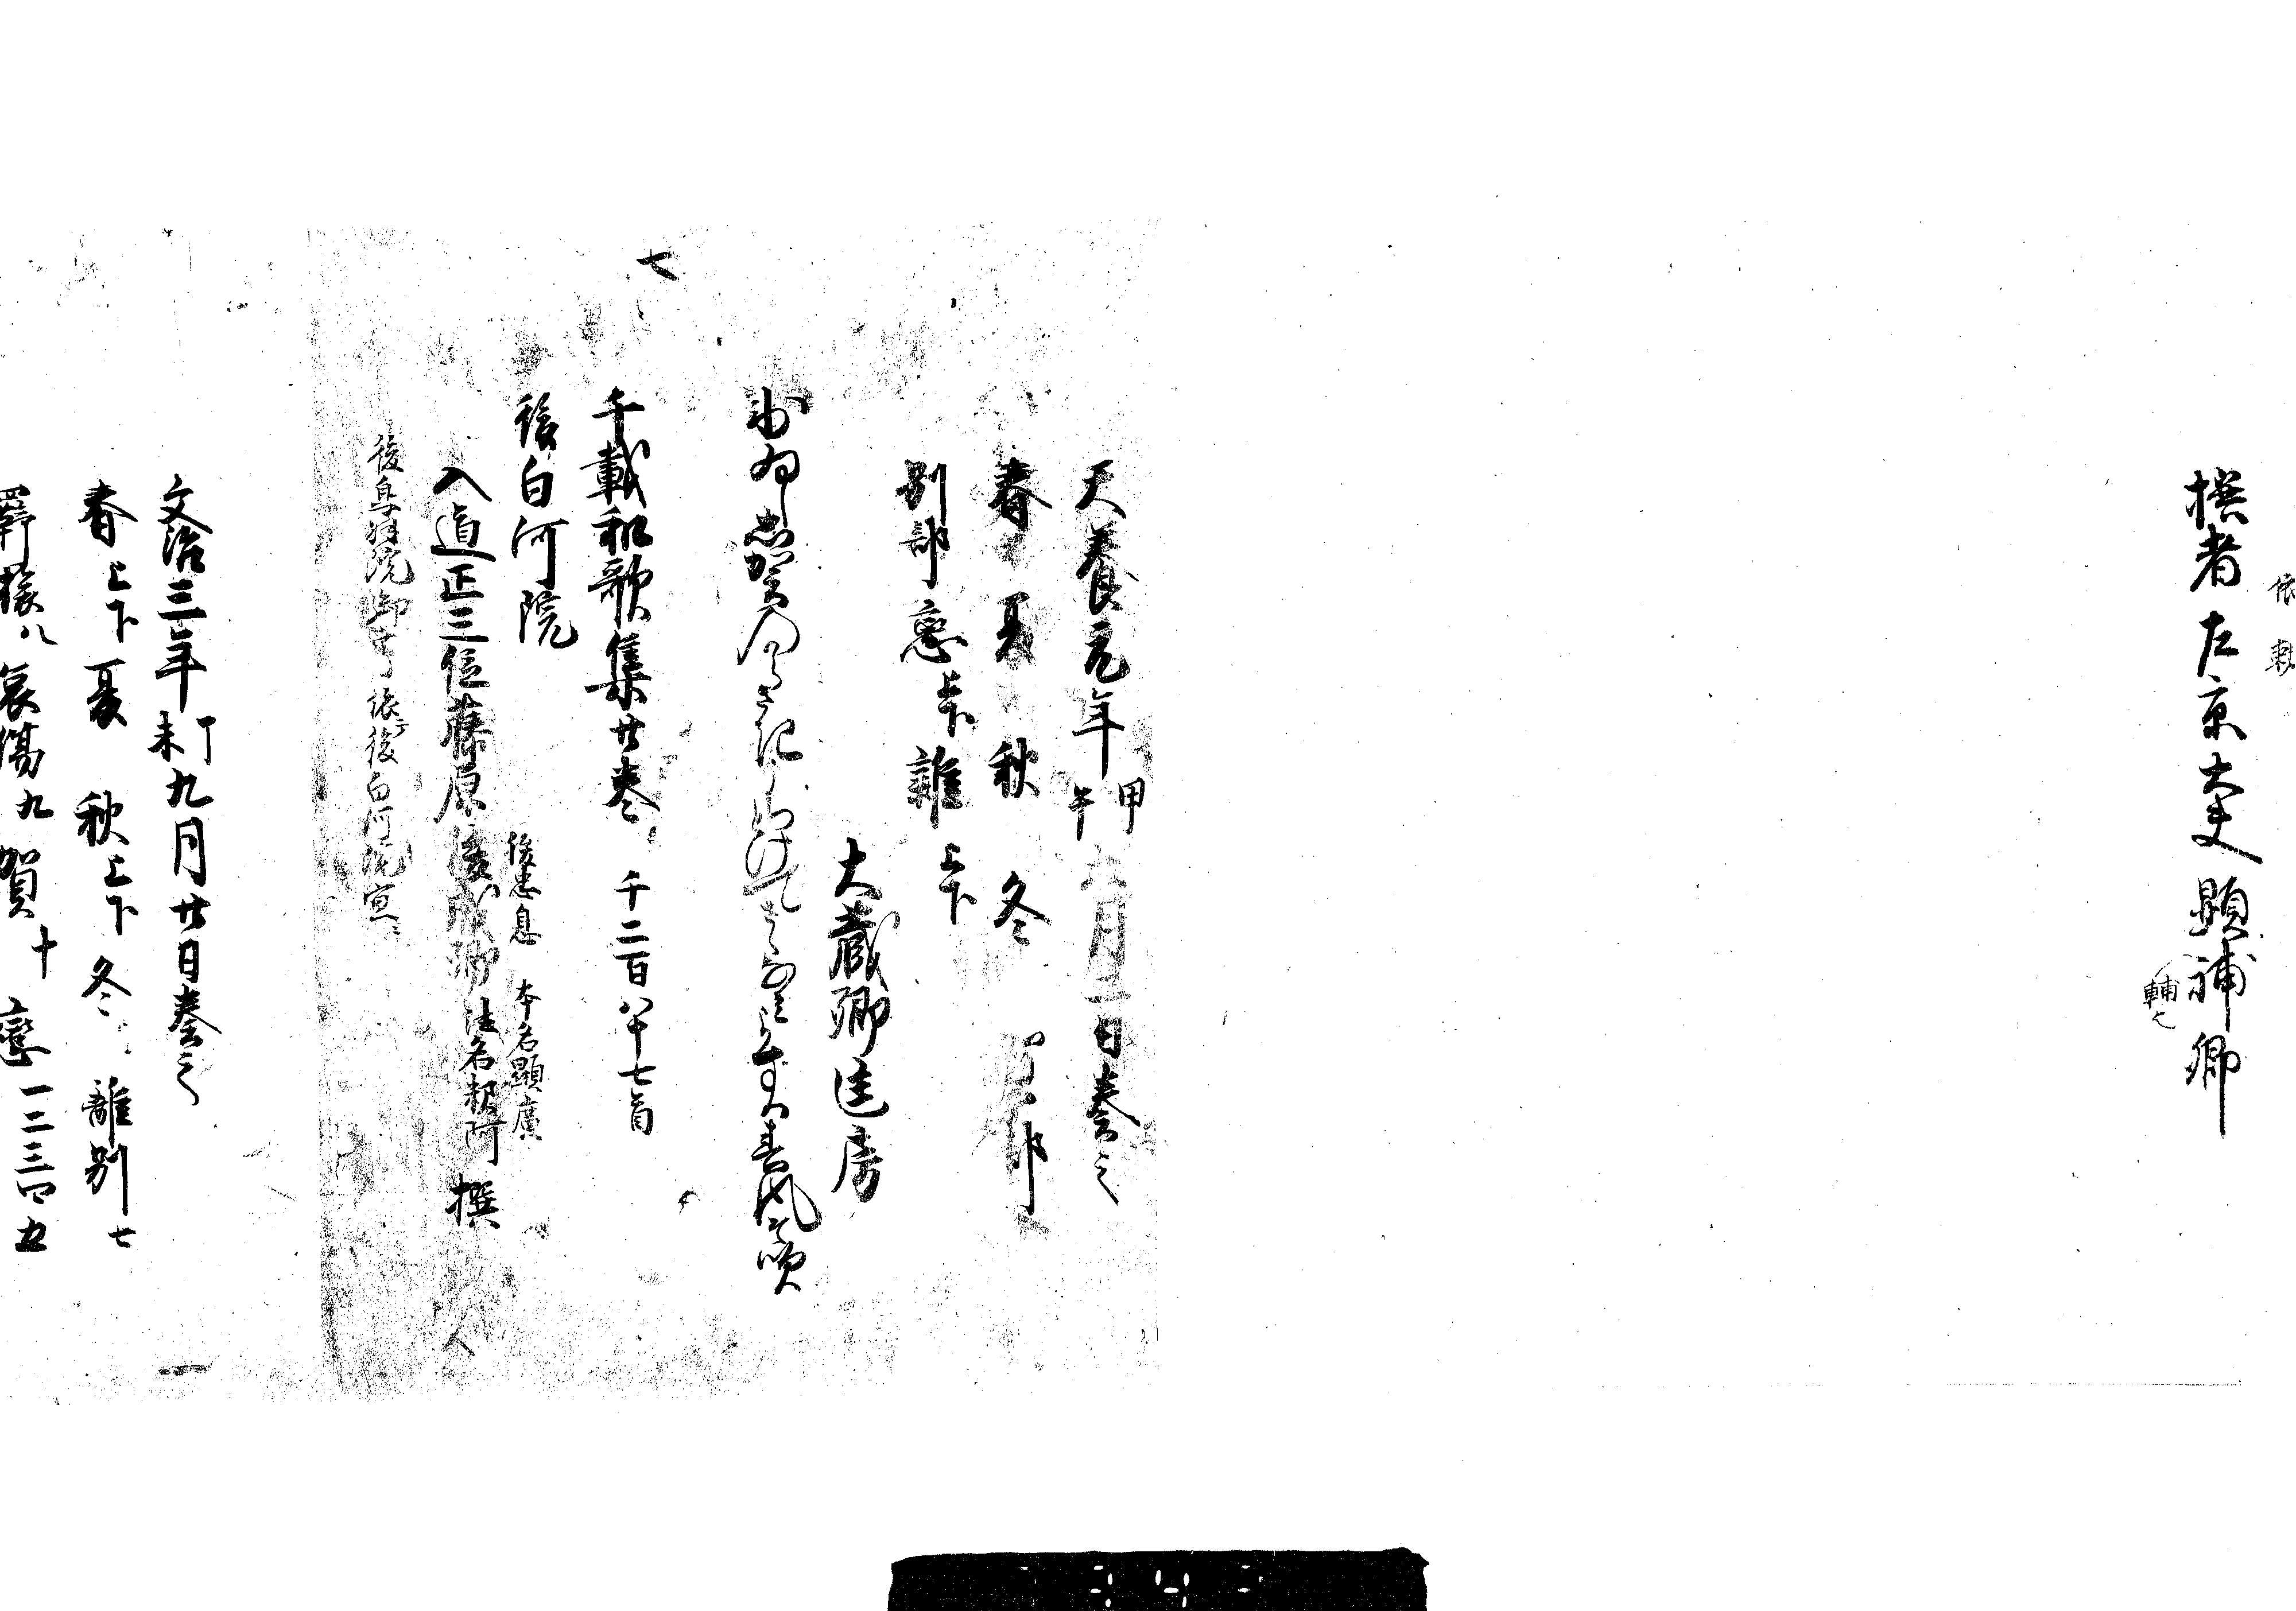 撰者左京大夫顕補卿
輔歟
天養元年甲午六月二日奏之
春 夏 秋 冬 賀部
別部 恋上下 雑上下
大蔵卿匡房
七
千載和歌集廿巻 千二百八十七首
後白河院
俊忠息 本名顕廣
入道正三位藤原俊成卿法名釈阿 撰
後鳥羽院御宇 依後白河院宣
文治三年丁未九月廿日奏之
春上下 夏 秋上下 冬 離別七
羇旅八 哀傷九 賀十 戀一二三四五